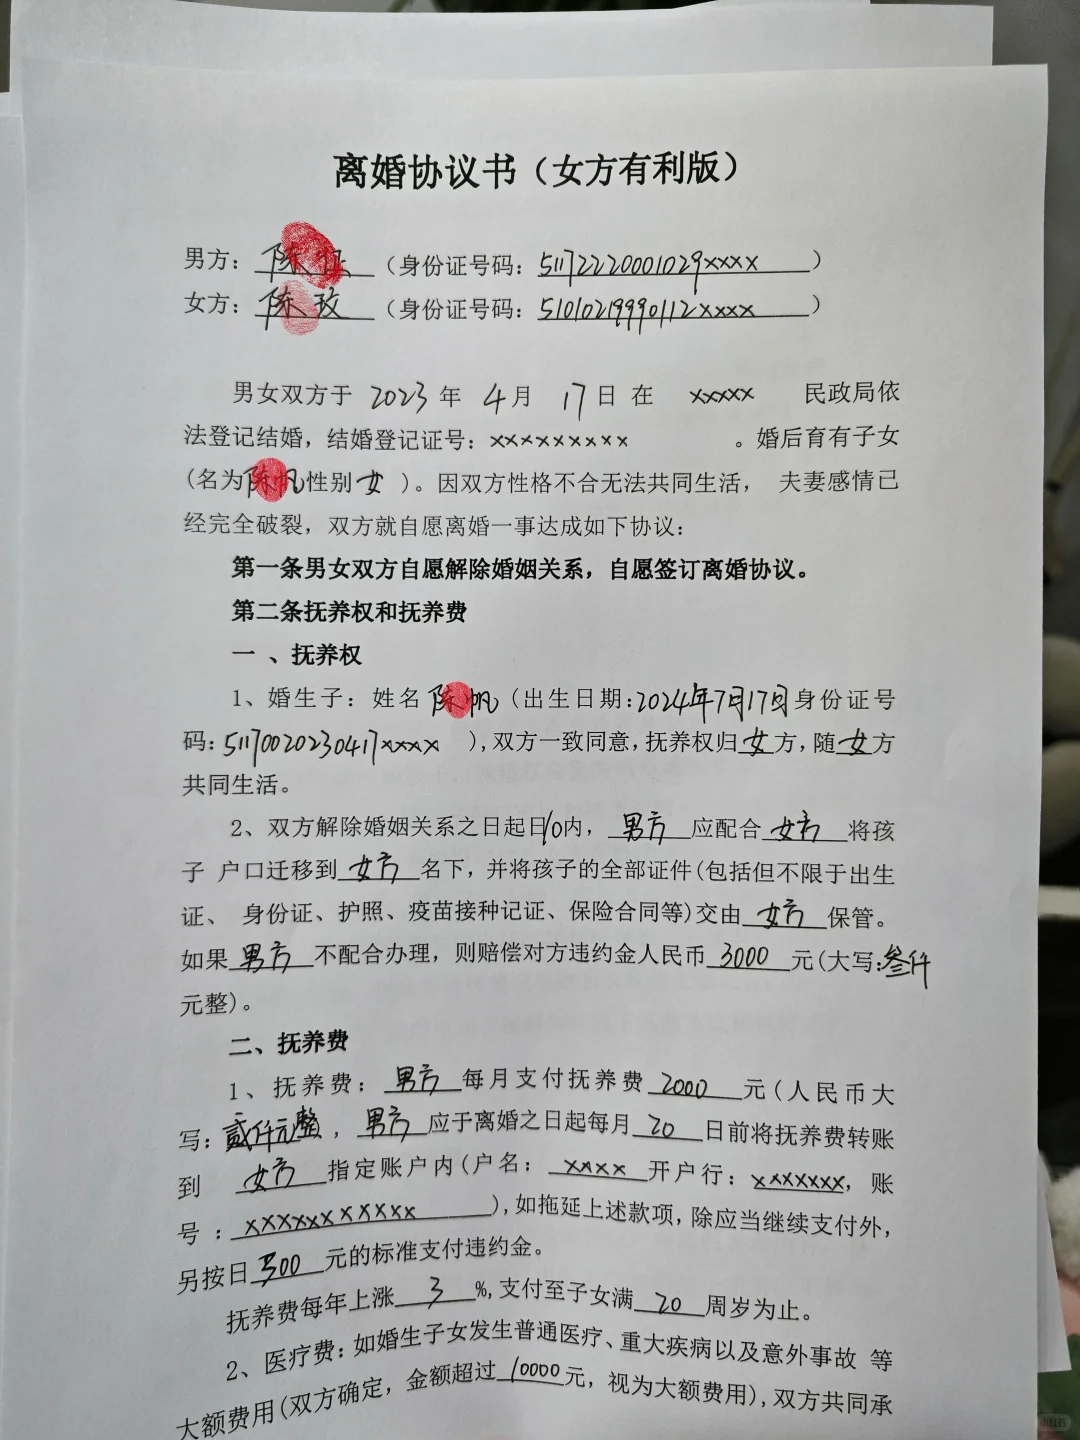 离婚协议书（女方有利版）
男方：陈 （身份证号码：51172220001029xxxx）
女方：陈玫（身份证号码：51010219990112xxxx）
男女双方于 2023 年 4月 17日 在 xxxxx 民政局依
法登记结婚，结婚登记证号：xxxxxxxxx 。婚后育有子女
(名为陈帆性别女 )。因双方性格不合无法共同生活， 夫妻感情已
经完全破裂，双方就自愿离婚一事达成如下协议：
第一条男女双方自愿解除婚姻关系，自愿签订离婚协议。
第二条抚养权和抚养费
一 、抚养权
1、婚生子：姓名 陈帆（出生日期：2024年7月17日身份证号
码：51170020230417xxxx ），双方一致同意，抚养权归女方，随女方
共同生活。
2、双方解除婚姻关系之日起日10内，男方应配合女方将孩
子 户口迁移到女方名下，并将孩子的全部证件(包括但不限于出生
证、 身份证、护照、疫苗接种记证、保险合同等)交由女方保管。
如果男方不配合办理，则赔偿对方违约金人民币3000元(大写：叁仟
元整)。
二、抚养费
1、抚养费：男方每月支付抚养费2000元(人民币大
写：贰仟元整，男方应于离婚之日起每月20日前将抚养费转账
到 女方指定账户内(户名：xxxx开户行：xxxxxxx，账
号：xxxxxxxxxxx)，如拖延上述款项，除应当继续支付外，
另按日300元的标准支付违约金。
抚养费每年上涨3%，支付至子女满20周岁为止。
2、医疗费：如婚生子女发生普通医疗、重大疾病以及意外事故 等
大额费用(双方确定，金额超过10000元，视为大额费用)，双方共同承
小红书